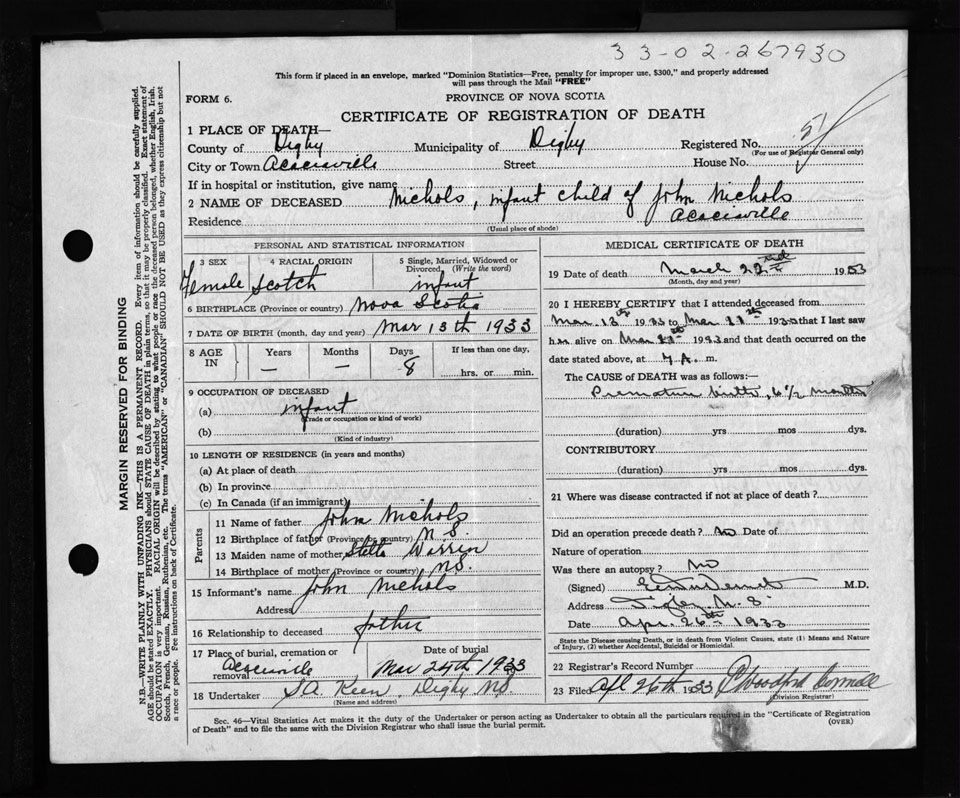 33-02-267930
This form if placed in an envelope, marked "Dominion Statistics—Free, penalty for improper use, $300," and properly addressed
will pass through the Mail "FREE"
FORM 6.
PROVINCE OF NOVA SCOTIA
CERTIFICATE OF REGISTRATION OF DEATH
1 PLACE OF DEATH—
County of Digby Municipality of Digby Registered No. 51
(For use of Registrar General only)
City or Town Acaciaville Street House No.
If in hospital or institution, give name
2 NAME OF DECEASED Nichols, infant child of John Nichols
Residence Acaciaville
(Usual place of abode)
PERSONAL AND STATISTICAL INFORMATION
3 SEX 4 RACIAL ORIGIN 5 Single, Married, Widowed or Divorced (Write the word)
Female Scotch infant
6 BIRTHPLACE (Province or country) Nova Scotia
7 DATE OF BIRTH (month, day and year) Mar 13th 1933
8 AGE IN Years Months Days If less than one day
— — 8 hrs. or min.
9 OCCUPATION OF DECEASED
(a) infant
(Trade or occupation or kind of work)
(b)
(Kind of industry)
10 LENGTH OF RESIDENCE (in years and months)
(a) At place of death
(b) In province
(c) In Canada (if an immigrant)
Parents
11 Name of father John Nichols
12 Birthplace of father (Province or country) N.S.
13 Maiden name of mother Stella Warren
14 Birthplace of mother (Province or country) N.S.
15 Informant's name John Nichols
Address
16 Relationship to deceased father
17 Place of burial, cremation or removal Date of burial
Acaciaville Mar 24th 1933
18 Undertaker Keen. Digby NS
(Name and address)
MEDICAL CERTIFICATE OF DEATH
19 Date of death March 22nd 1933
(Month, day and year)
20 I HEREBY CERTIFY that I attended deceased from
Mar. 13th 1933 to Mar 21st 1933 that I last saw
h alive on Mar 21st 1933 and that death occurred on the
date stated above, at 7 A. m.
The CAUSE OF DEATH was as follows:—
Premature birth, 6 1/2 months
(duration) yrs mos dys.
CONTRIBUTORY
(duration) yrs mos dys.
21 Where was disease contracted if not at place of death?
Did an operation precede death? No Date of
Nature of operation
Was there an autopsy? No
(Signed) M.D.
Address Digby N.S.
Date Apr. 26th 1933
State the Disease causing Death, or in death from Violent Causes, state (1) Means and Nature
of Injury, (2) whether Accidental, Suicidal or Homicidal.
22 Registrar's Record Number
23 Filed Apl 26th 1933 Woodford
(Division Registrar)
Sec. 46—Vital Statistics Act makes it the duty of the Undertaker or person acting as Undertaker to obtain all the particulars required in the "Certificate of Registration
of Death" and to file the same with the Division Registrar who shall issue the burial permit. (OVER)
MARGIN RESERVED FOR BINDING
N.B.—WRITE PLAINLY WITH UNFADING INK—THIS IS A PERMANENT RECORD. Every item of information should be carefully supplied.
AGE should be stated EXACTLY. PHYSICIANS should STATE CAUSE OF DEATH in plain terms, so that it may be properly classified. Exact statement of
OCCUPATION is very important. RACIAL ORIGIN will be described by stating to what people or race the deceased person belonged, whether English, Irish,
Scotch, French, German, Russian, Ruthenian, etc. The terms "AMERICAN" or "CANADIAN" SHOULD NOT BE USED as they express citizenship but not
a race or people. Fee instructions on back of Certificate.